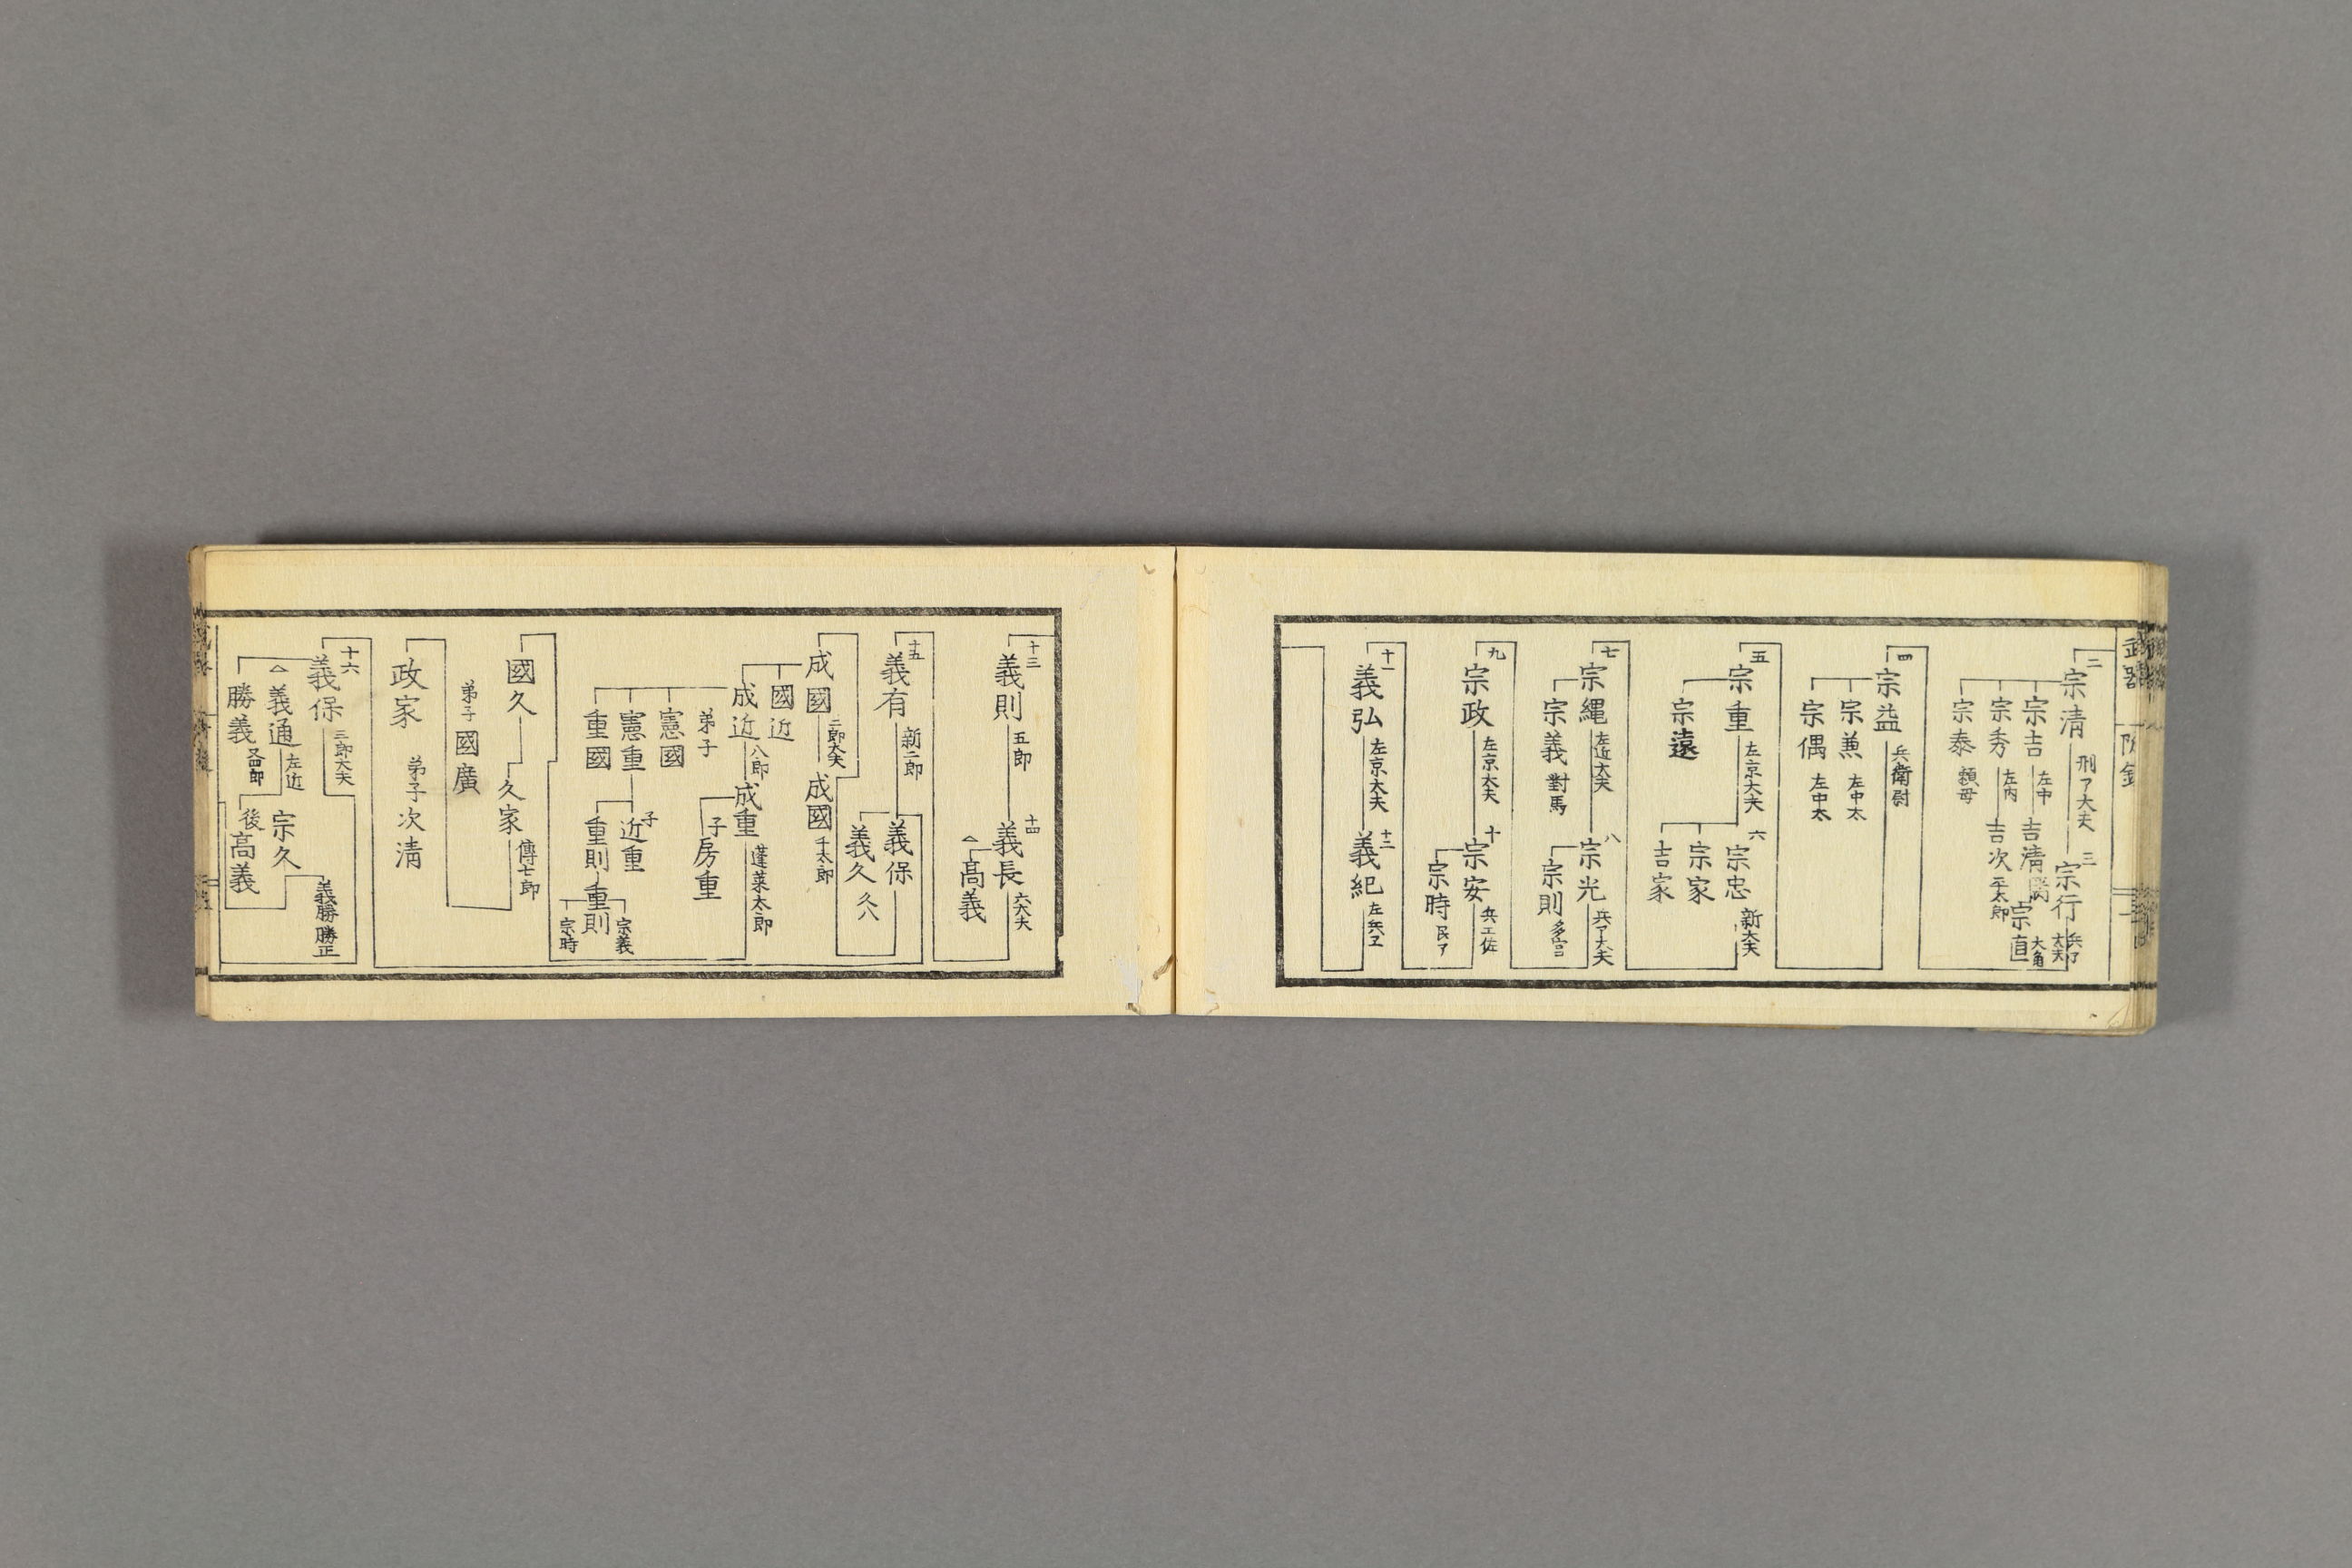 二
宗清 刑ア大夫
三
宗行 兵ア大夫
宗吉 左中
吉清
宗直 大角
宗秀 左内
吉次 平太郎
宗泰 頼母
四
宗益 兵衛尉
宗兼 左中太
宗偶 左中太
五
宗重 左京大夫
六
宗忠 新大夫
宗家
吉家
宗遠
七
宗縄 左近大夫
八
宗光 兵ア大夫
宗義 對馬
宗則 多宮
九
宗政 左京大夫
十
宗安 兵工佐
宗時 民ア
十一
義弘 左京大夫
十二
義紀 左兵工
十三
義則 五郎
十四
義長 六大夫
高義
十五
義有 新二郎
義保
義久 久八
成國 二郎大夫
成國 千太郎
國近
成近 八郎
成重 蓬莱太郎
子 房重
弟子
憲國
憲重
子 近重
重國
重則
重則
宗義
宗時
國久
久家 傳七郎
弟子 國廣
政家
弟子 次清
十六
義保 三郎大夫
義通 左近
勝義
宗久
義勝 勝正
後 高義